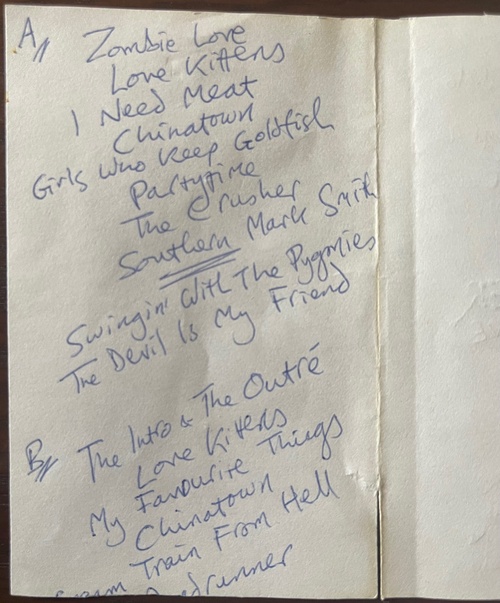 A// Zombie Love
Love Kittens
I Need Meat
Chinatown
Girls Who Keep Goldfish
Partytime
The Crusher
Southern Mark Smith
Swingin' With The Pygmies
The Devil Is My Friend
B// The Intro & The Outré
Love Kittens
My Favourite Things
Chinatown
Train From Hell